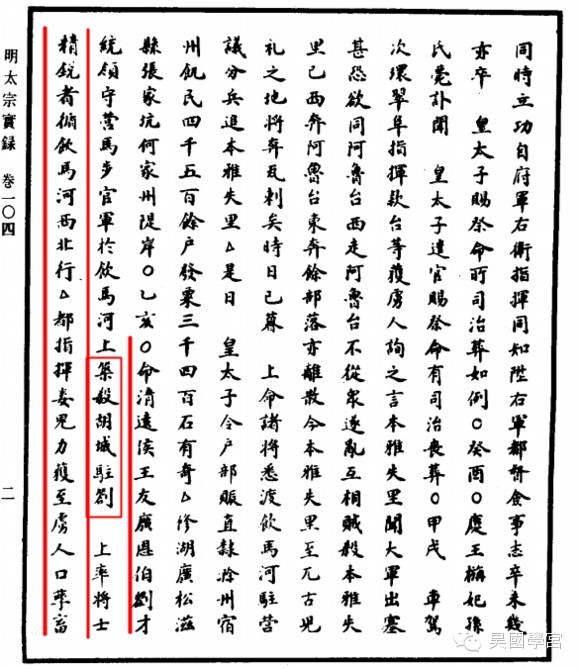 同時立功自府軍右衛指揮同知陞右軍都督僉事志卒未幾
亦卒　皇太子賜祭命所司治葬如例○癸酉○慶王㮵妃孫
氏薨訃聞　皇太子遣官賜祭命有司治喪葬○甲戌　車駕
次環翠阜指揮款台等獲虜人詢之言本雅失里聞大軍出塞
甚恐欲同阿魯台西走阿魯台不從衆遂亂互相賊殺本雅失
里已西奔阿魯台東奔餘部落亦離散今本雅失里至兀古兒
札之地將奔瓦剌矣時日已暮　上命諸將悉渡飲馬河駐營
議分兵追本雅失里△是日　皇太子令户部賑直隸滁州宿
州飢民四千五百餘户發粟三千四百石有奇△修湖廣松滋
縣張家坑何家州隄岸○乙亥○命清遠侯王友廣恩伯劉才
統領守營馬步官軍於飲馬河上築殺胡城駐劄　上率將士
精銳者循飲馬河西北行△都指揮婁兒力獲至虜人口率畜
明太宗實録　卷一〇四　二
吳國學宫